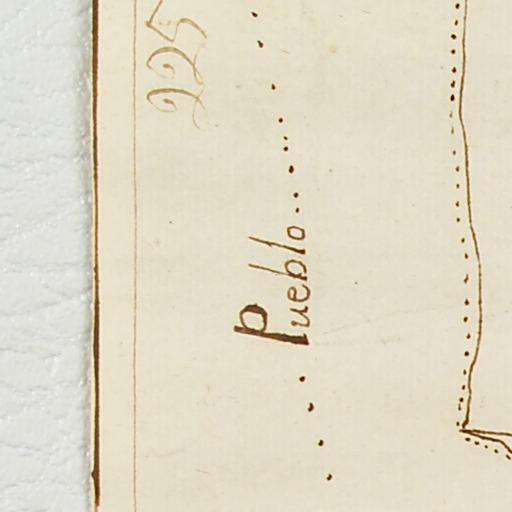 225
Pueblo